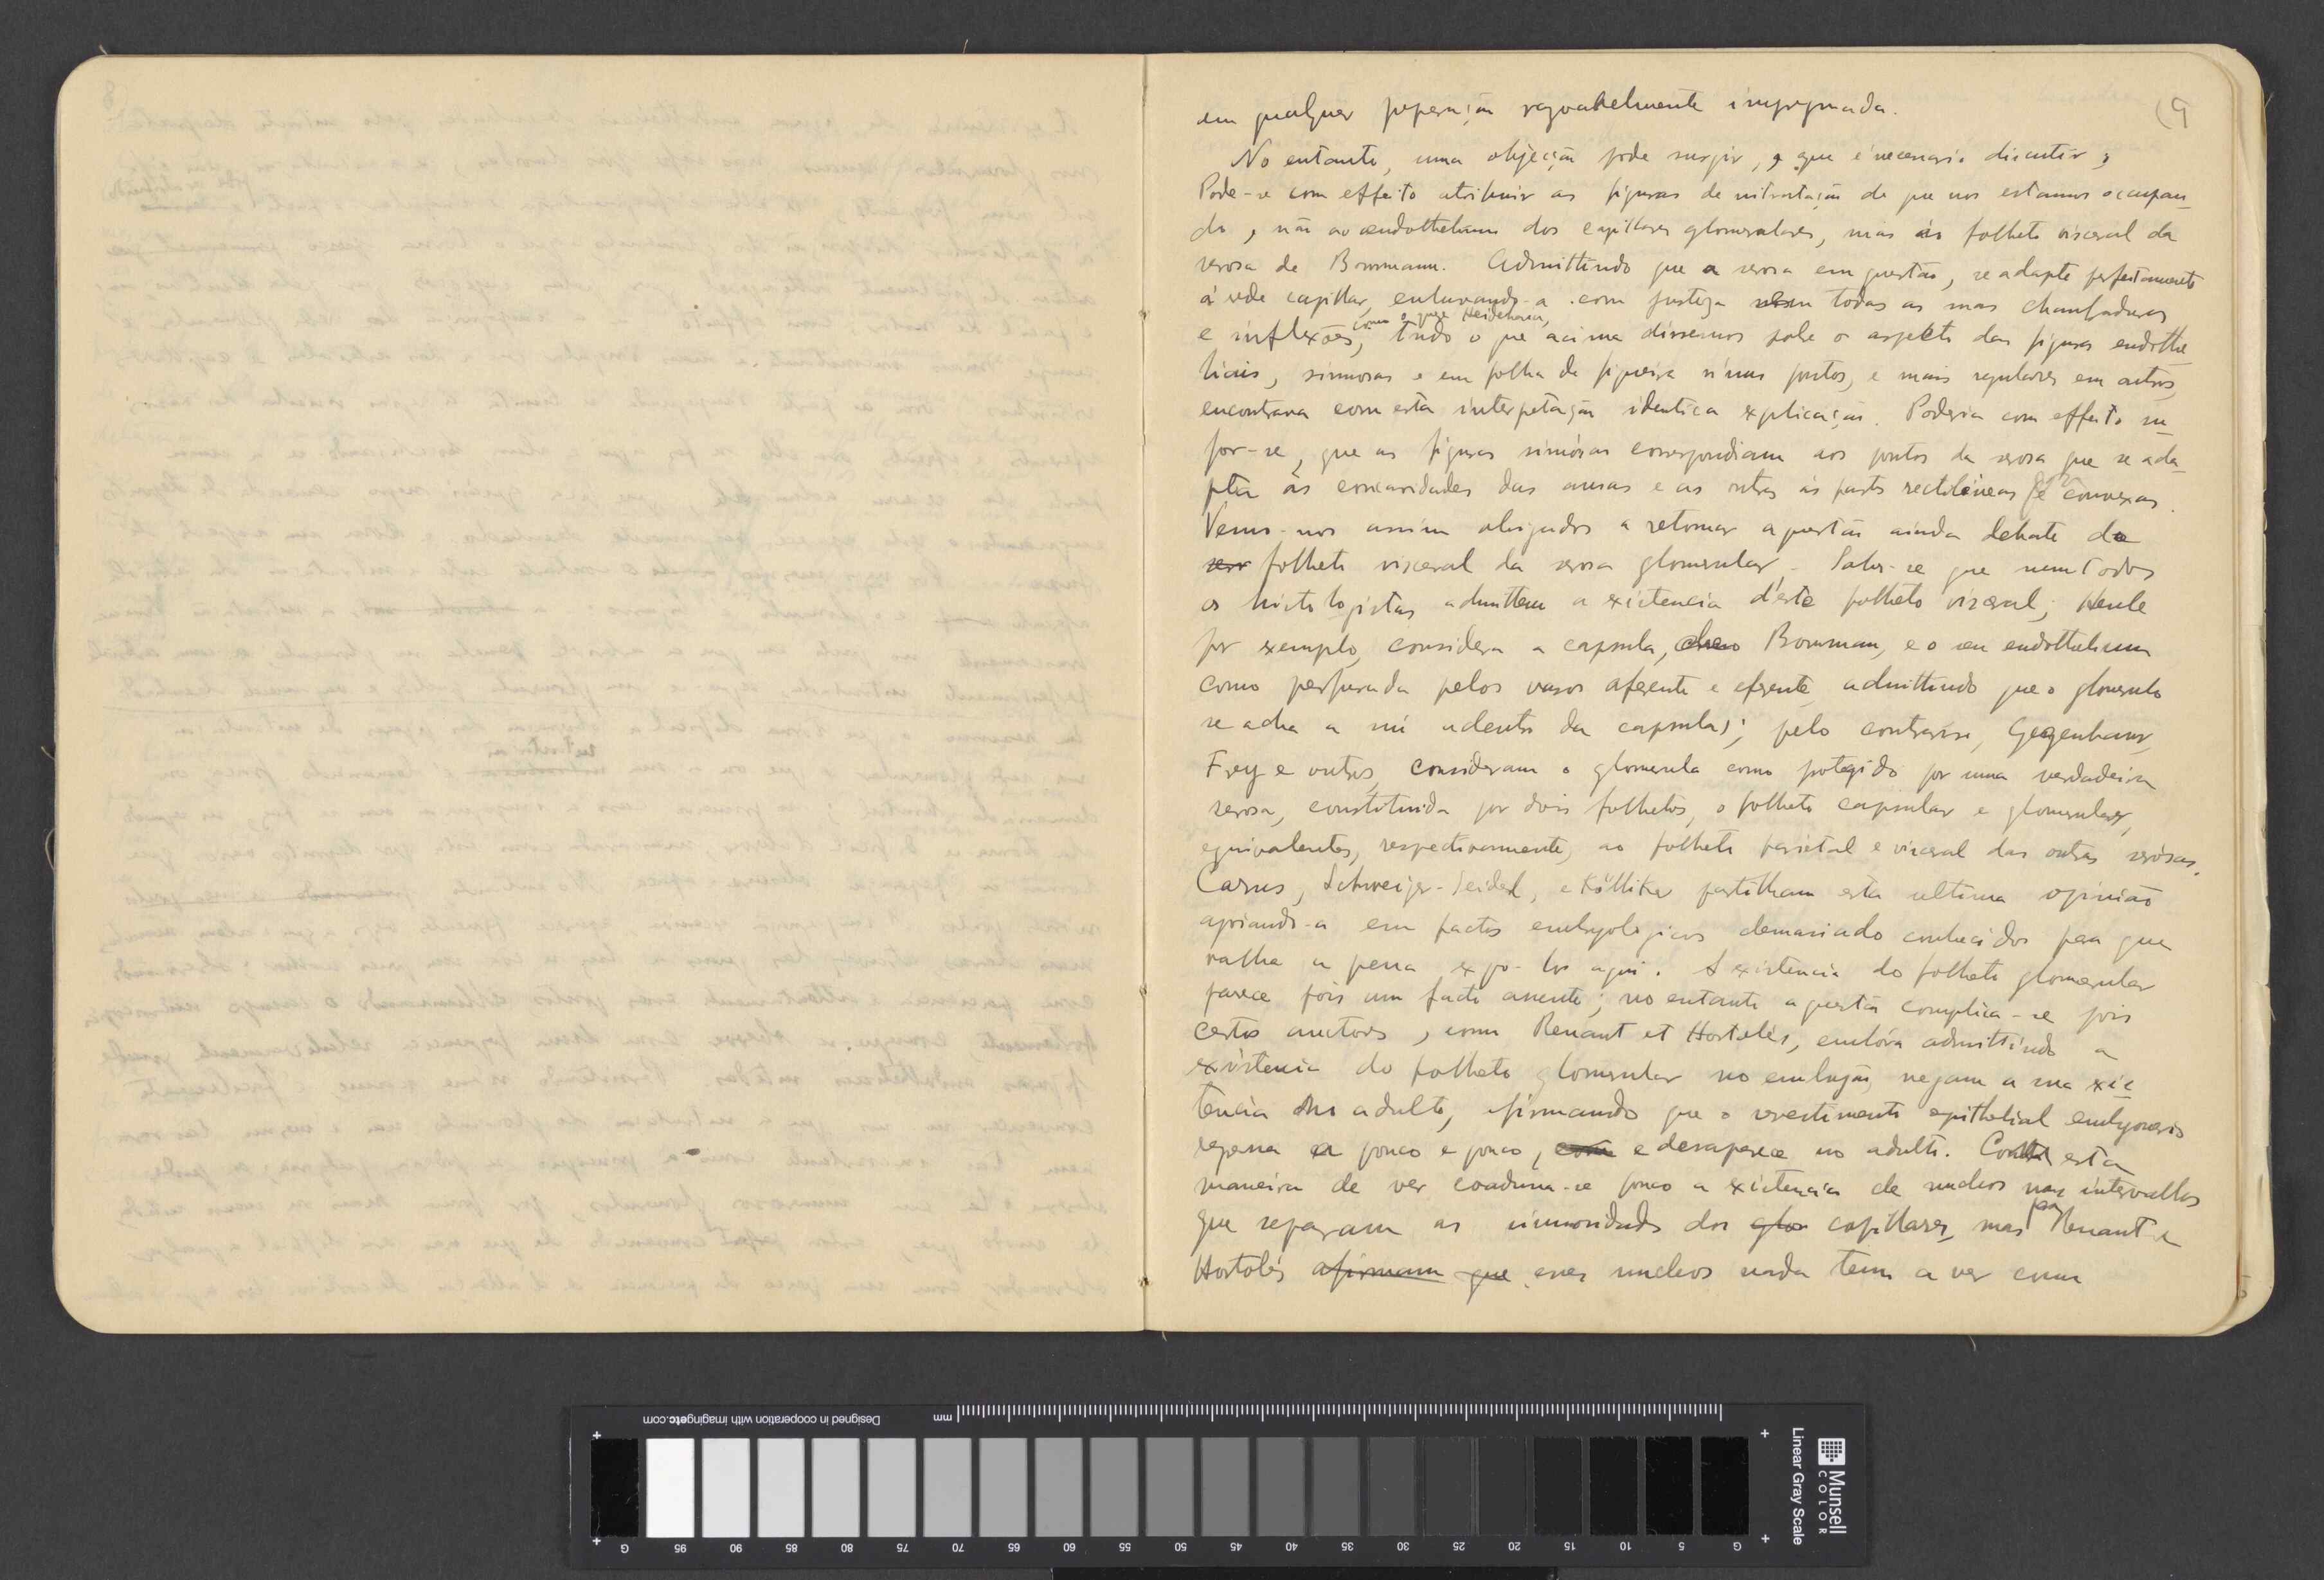 em qualquer preparação rasoavelmente impregnada.
(9
No entanto, uma objecção pode surgir, e que é necessario discutir;
Pode-se com effeito atribuir as figuras de nitratação de que nos estamos occupan-
do, não ao endothelium dos capillares glomerulares, mas ao folheto visceral da
serosa de Bowmann. Admittindo que a serosa em questão, se adapte perfeitamente
á rede capillar, enluvando-a com justeza em todas as suas chanfraduras
como o quer Heidenhain,
e inflexões, tudo o que acima dissemos sobre o aspecto das figuras endothe-
liaes, sinuosas e em folha de figueira n'uns pontos, e mais regulares em outros,
encontrava com esta interpetação identica explicação. Poderia com effeito su-
por-se, que as figuras sinuósas correspondiam aos pontos da serosa que se ada-
pta ás concavidades das ansas e as outras ás partes rectolineas e convexas.
Vemo-nos assim obrigados a retomar a questão ainda debate do
ser folheto visceral da serosa glomerular. Sabe-se que nem todos
os histologistas admittem a existencia d'este folheto visceral; Henle
por exemplo, considera a capsula, de Bowman, e o seu endothelium
como perfurada pelos vasos aferente e eferente, admittindo que o glomerulo
se acha a nú adentro da capsula; pelo contrario, Gegenbaur,
Frey e outros, consideram o glomerula como protegido por uma verdadeira
serosa, constituida por dois folhetos, o folheto capsular e glomerular,
equivalentes, respectivamente, ao folheto parietal e visceral das outras serósas.
Carus, Schweiger-Seidel, e Kölliker partilham esta ultima opinião
apoiando-a em factos embryologicos demasiado conhecidos para que
valha a pena expo-los aqui. A existencia do folheto glomerular
parece pois um facto assente; no entanto a questão complica-se pois
certos auctores, como Renaut et Hortolès, embóra admittindo a
existencia do folheto glomerular no embryão, negam a sua exis-
tencia no adulto, afirmando que o revestimento epithelial embryonario
regressa a pouco e pouco, com e desaparece no adulto. Com esta
maneira de ver coaduna-se pouco a existencia de nucleos nos intervallos
que separam as sinuosidades dos glo capillares, mas para Renaut e
Hortolés afirmam que esses nucleos nada tem a ver com
Designed in cooperation with imagingetc.com
mm
Munsell
COLOR
Linear Gray Scale
G 95 90 85 80 75 70 65 60 55 50 45 40 35 30 25 20 15 10 5 G